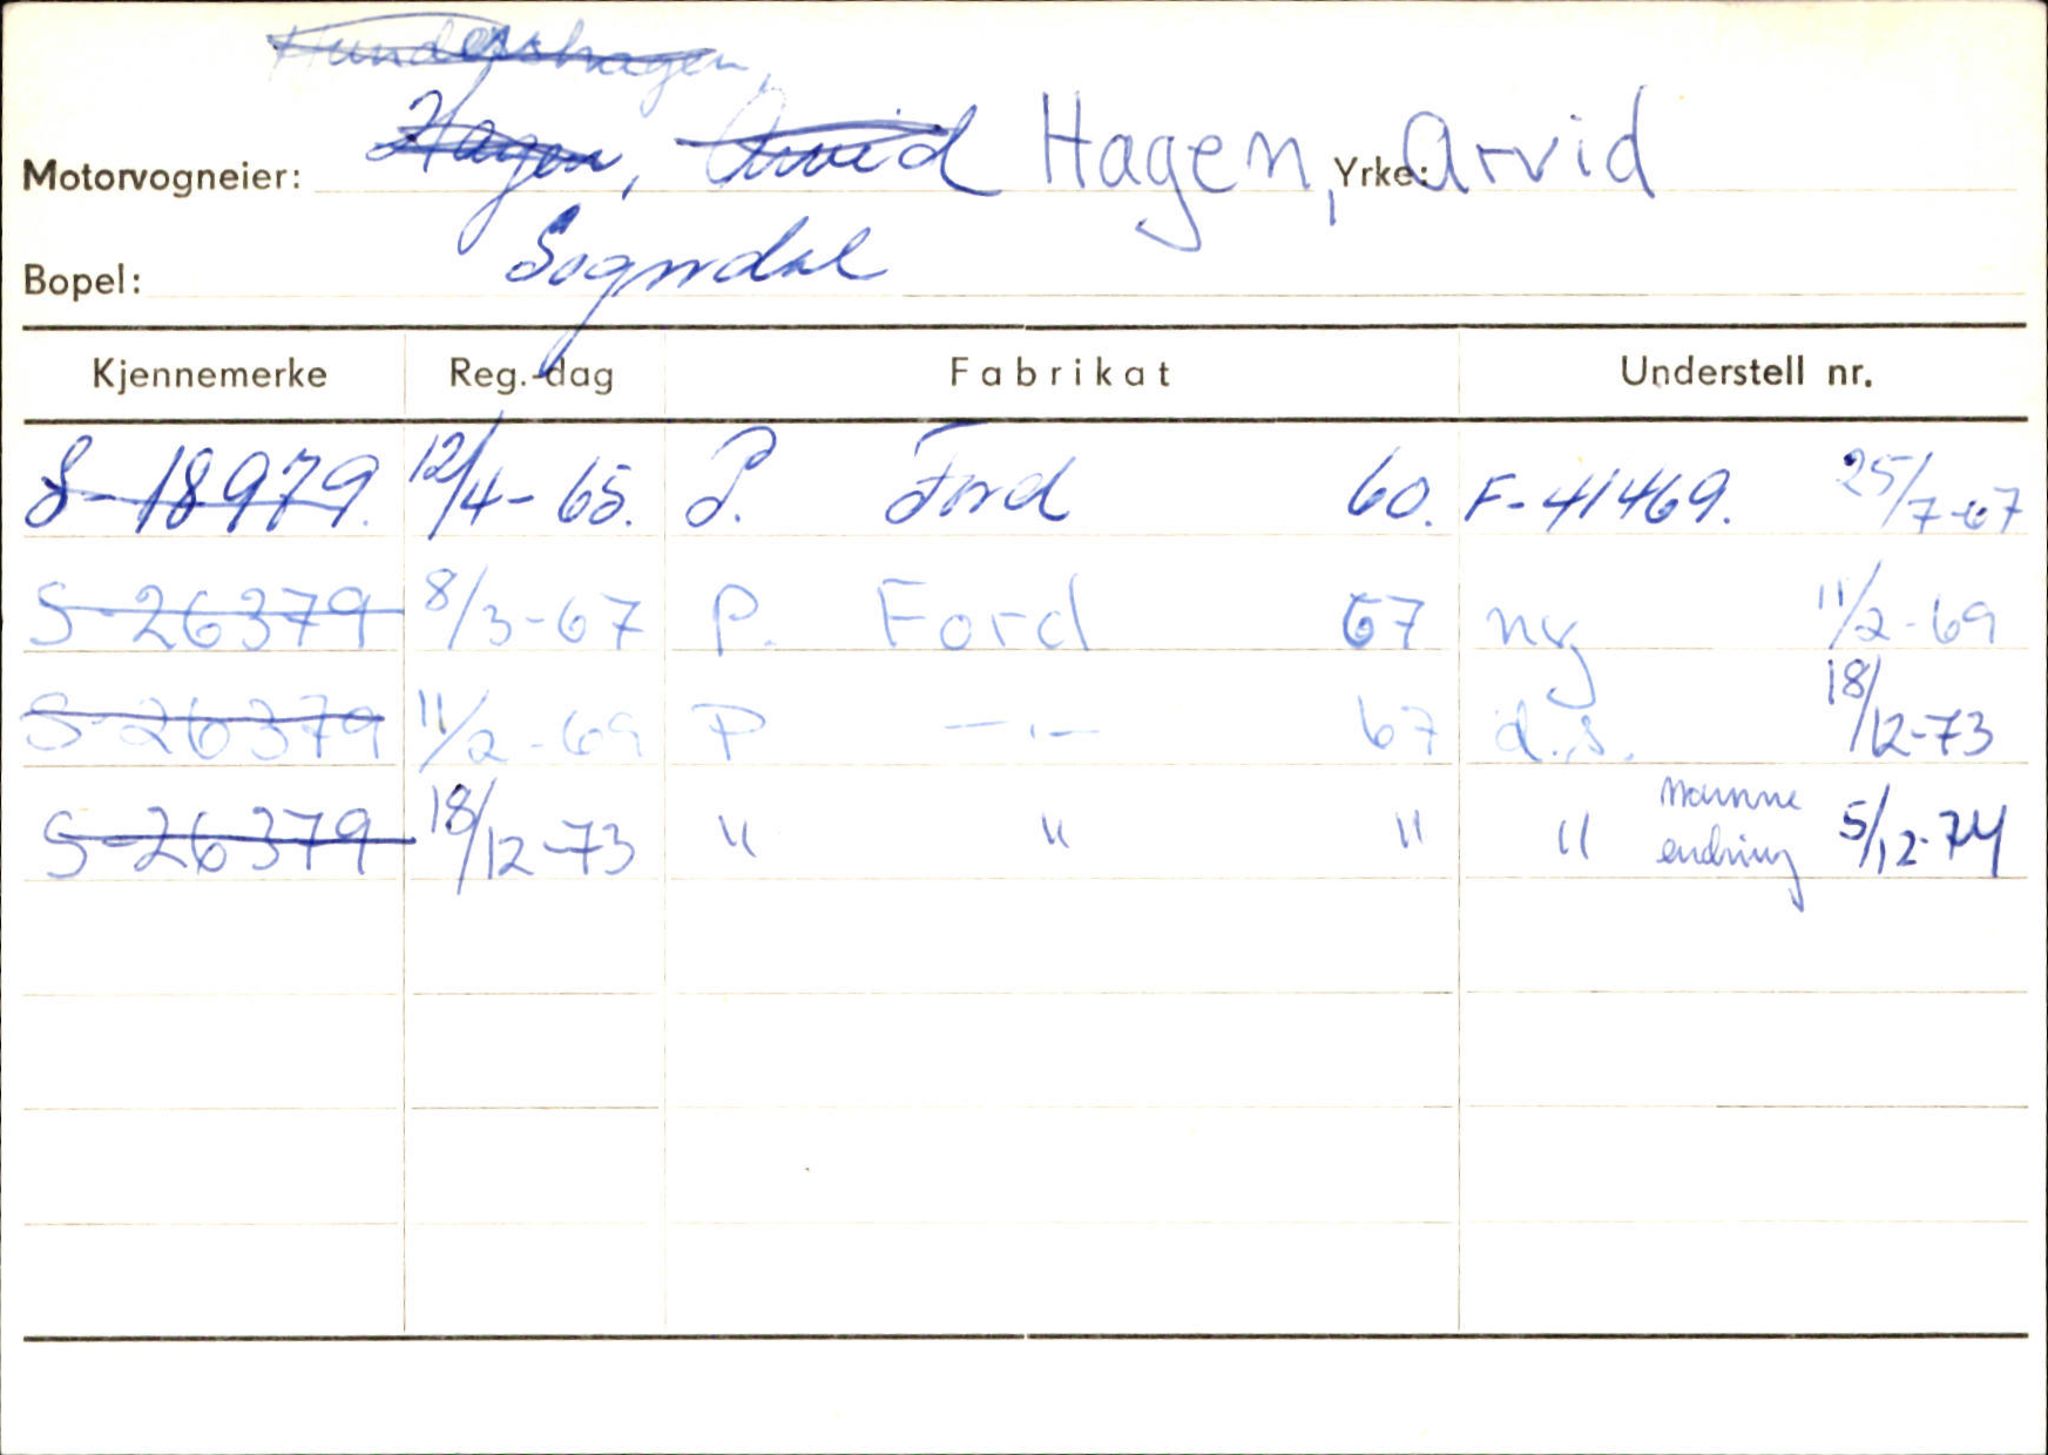 Hundershagen,
Motorvogneier: Hagen, Arvid Hagen, Yrke: Arvid
Bopel: Sogndal
Kjennemerke Reg.-dag Fabrikat Understell nr.
S-18979. 12/4-65. P. Ford 60. F-41469. 25/7-67
S-26379 8/3-67 P. Ford 67 ny 11/2-69
S-26379 11/2-69 P —"— 67 d.s. 18/12-73
S-26379 18/12-73 " " " " navne 5/12-74
endring